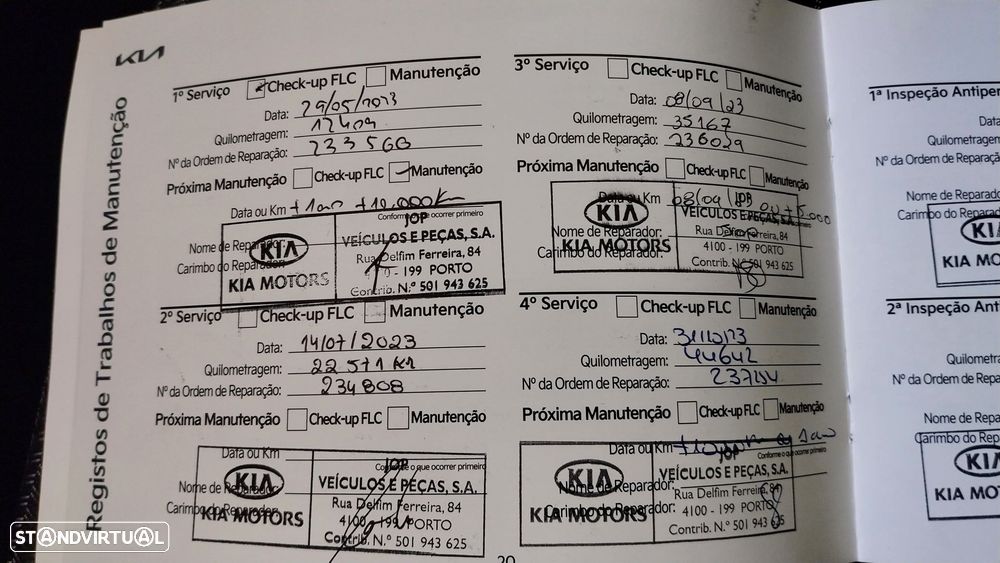 KIA
Registos de Trabalhos de Manutenção
1º Serviço Check-up FLC Manutenção
Data: 29/05/2023
Quilometragem: 12409
Nº da Ordem de Reparação: 233568
Próxima Manutenção Check-up FLC Manutenção
Data ou Km +1 ano +10.000 Km
Conforme o que ocorrer primeiro
Nome de Reparador:
Carimbo do Reparador:
KIA
KIA MOTORS
JOP
VEÍCULOS E PEÇAS, S.A.
Rua Delfim Ferreira, 84
- 199 PORTO
Contrib. N.º 501 943 625
2º Serviço Check-up FLC Manutenção
Data: 14/07/2023
Quilometragem: 22571 km
Nº da Ordem de Reparação: 234808
Próxima Manutenção Check-up FLC Manutenção
Data ou Km
Conforme o que ocorrer primeiro
Nome de Reparador:
Carimbo do Reparador:
KIA
KIA MOTORS
JOP
VEÍCULOS E PEÇAS, S.A.
Rua Delfim Ferreira, 84
4100 - 199 PORTO
Contrib. N.º 501 943 625
3º Serviço Check-up FLC Manutenção
Data: 08/09/23
Quilometragem: 35167
Nº da Ordem de Reparação: 236029
Próxima Manutenção Check-up FLC Manutenção
Data ou Km 08/09/
Nome de Reparador:
Carimbo do Reparador:
KIA
KIA MOTORS
JOP
VEÍCULOS E PEÇAS, S.A.
Rua Delfim Ferreira, 84
4100 - 199 PORTO
Contrib. N.º 501 943 625
4º Serviço Check-up FLC Manutenção
Data:
Quilometragem: 44642
Nº da Ordem de Reparação:
Próxima Manutenção Check-up FLC Manutenção
Data ou Km
Conforme o que ocorrer primeiro
Nome de Reparador:
Carimbo do Reparador:
KIA
KIA MOTORS
JOP
VEÍCULOS E PEÇAS, S.A.
Rua Delfim Ferreira, 84
4100 - 199 PORTO
Contrib. N.º 501 943 625
20
1ª Inspeção Antiper
Data
Quilometra
Nº da Ordem de Reparaçã
Nome de Reparado
Carimbo do Reparado
KI
KIA MO
2ª Inspeção Ant
Quilometra
Nº da Ordem de Reparaç
Nome de Repa
Carimbo do Rep
KI
KIA MOT
STANDVIRTUAL